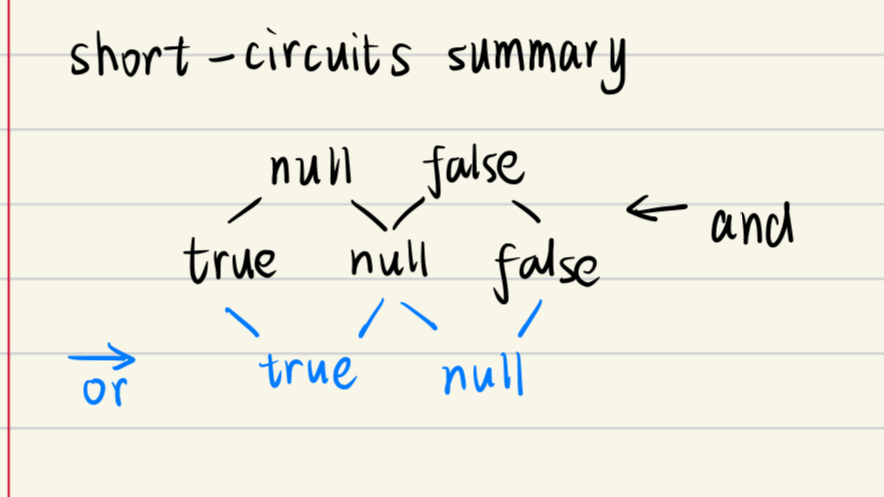 short-circuits summary
null false
and
true null false
true null
or